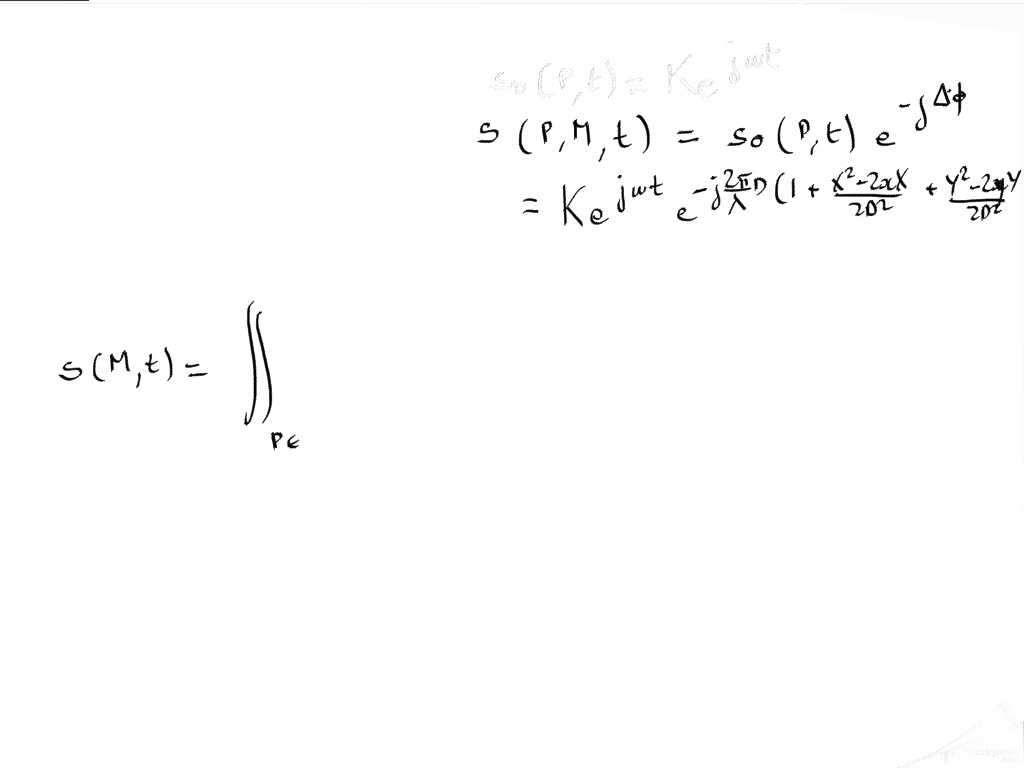 so(P,t) = Ke^jωt
s(P,M,t) = so(P,t) e^-jΔϕ
= Ke^jωt e^-j2π/λ D (1 + X²-2xX/2D² + Y²-2yY/2D²
s(M,t) = ∬
P∈